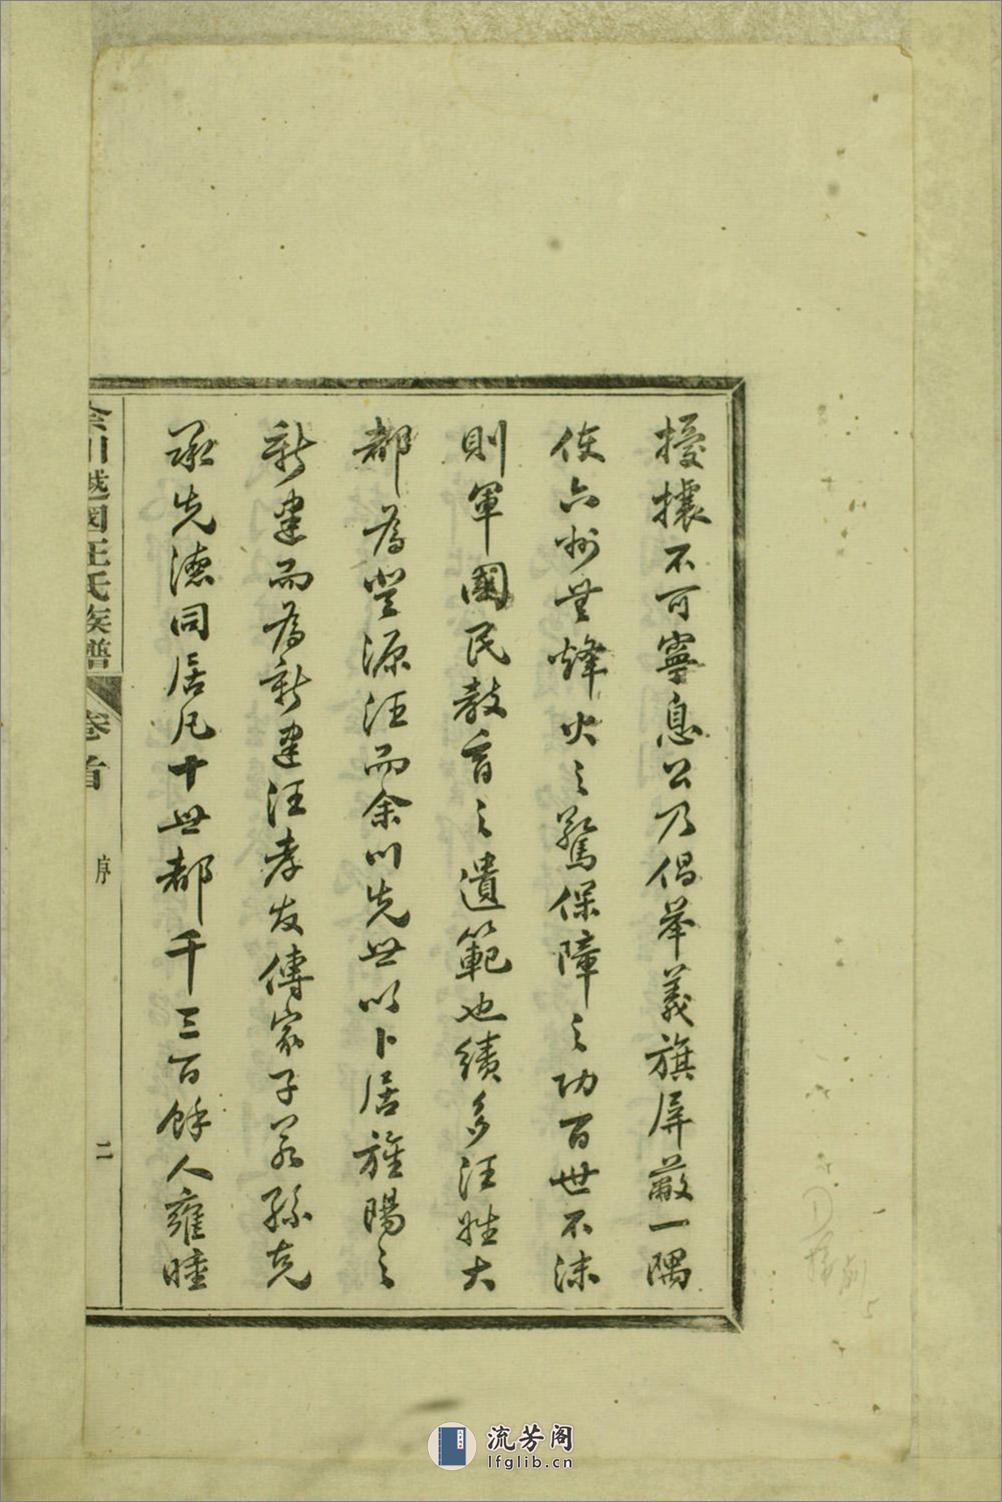 擾攘不可寧息公乃倡举義旗屏蔽一隅
使六州無烽火之驚保障之功百世不沫
則軍國民教育之遺範也績多汪姓大
都為登源汪而余川先世以卜居旌陽之
新建而為新建汪孝友傳家子若孫克
承先德同居凡十世都千三百餘人雍睦
余川越國汪氏族譜
卷首
序
二
流芳阁
lfglib.cn